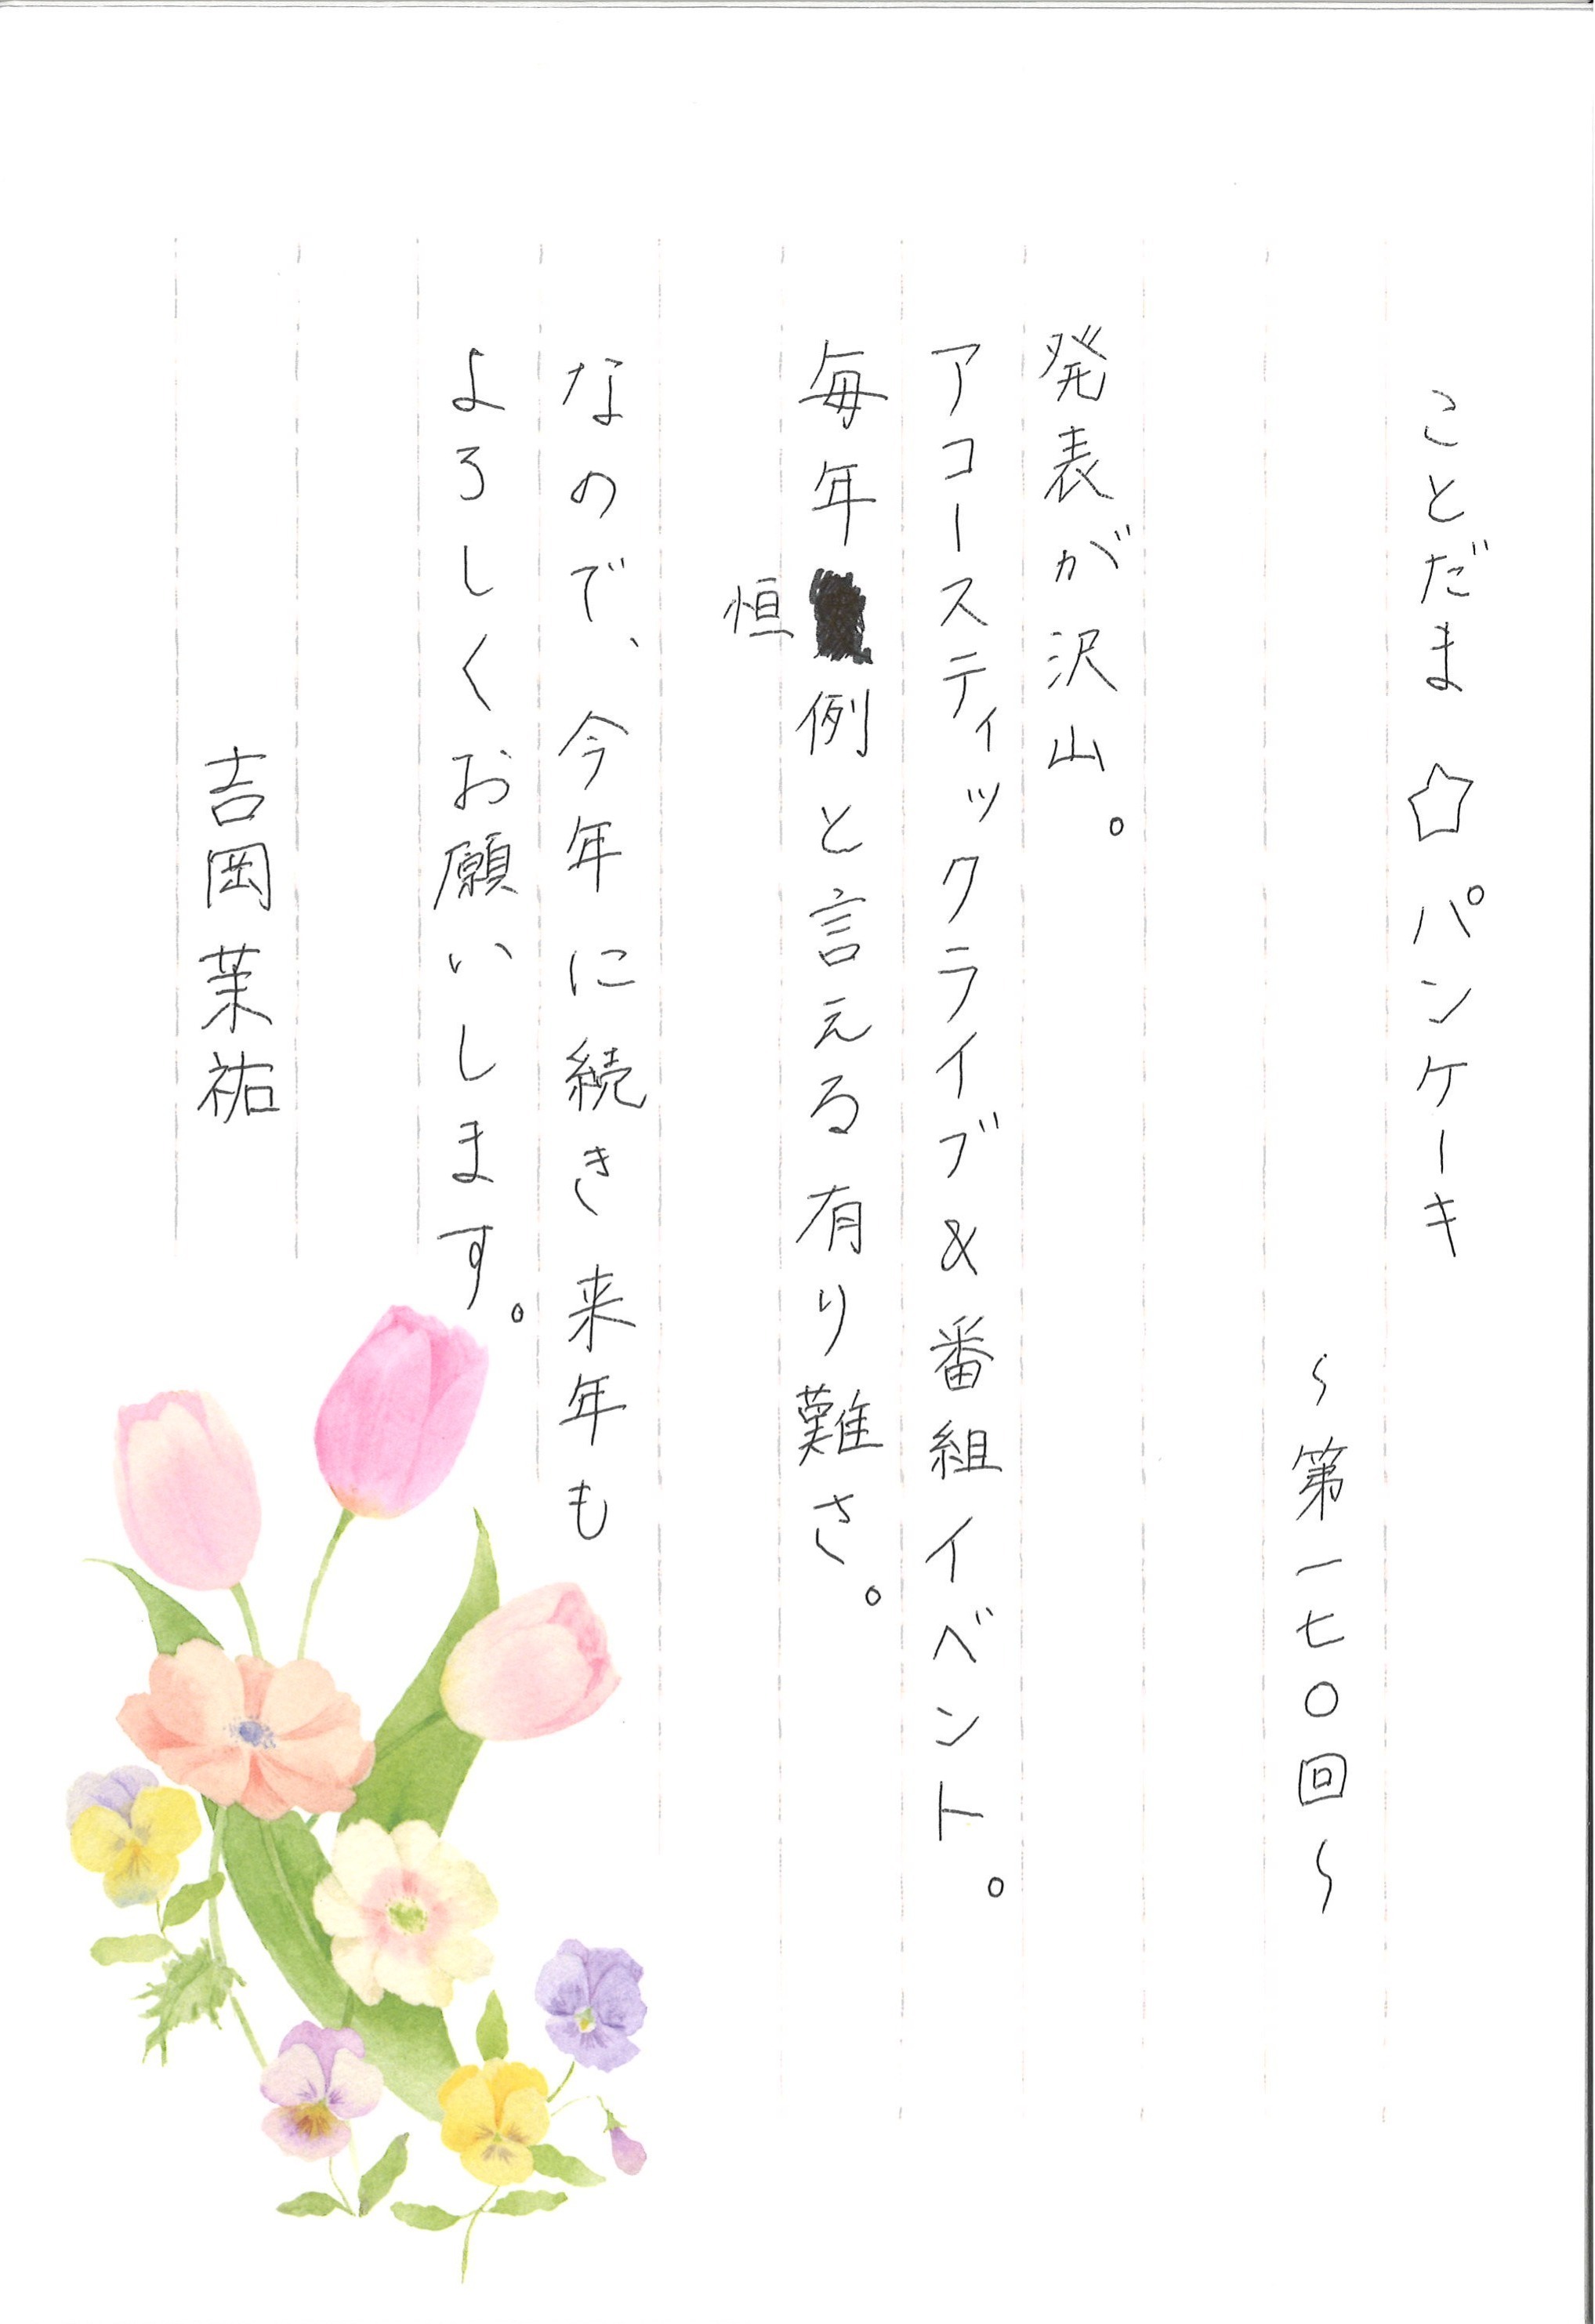 ことだま ☆ パンケーキ
〜第一七〇回〜
発表が沢山。
アコースティックライブ&番組イベント。
毎年恒例と言える有り難さ。
なので、今年に続き来年も
よろしくお願いします。
吉岡茉祐